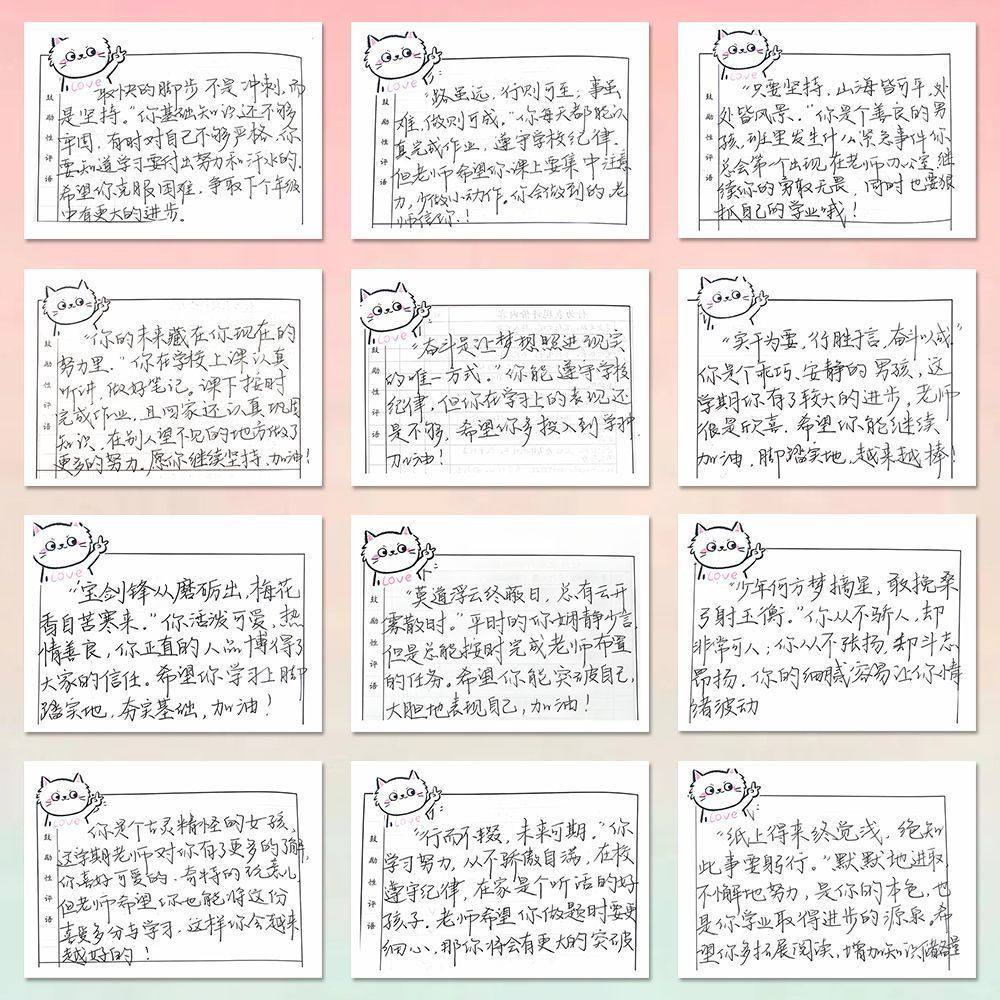 Love
鼓励性评语
最快的脚步不是冲刺,而
是坚持。"你基础知识还不够
牢固,有时对自己不够严格,你
要知道学习要付出努力和汗水的,
希望你克服困难,争取下个年级
中有更大的进步。
Love
鼓励性评语
"路虽远,行则可至;事虽
难,做则可成。"你每天都能认
真完成作业,遵守学校纪律.
但老师希望你课上要集中注意
力,少做小动作。你会做到的,老
师信你!
Love
鼓励性评语
"只要坚持,山海皆可平,处
处皆风景。"你是个善良的男
孩,班里发生什么紧急事件你
总会第一个出现在老师办公室,继
续你的勇敢无畏,同时也要狠
抓自己的学业哦!
鼓励性评语
"你的未来藏在你现在的
努力里。"你在学校上课认真
听讲,做好笔记。课下按时
完成作业,且回家还认真巩固
知识,在别人望不见的地方做了
更多的努力,愿你继续坚持,加油!
Love
鼓励性评语
"奋斗是让梦想照进现实
的唯一方式。"你能遵守学校
纪律,但你在学习上的表现还
是不够,希望你多投入到学习中,
加油!
Love
鼓励性评语
"实干为要,行胜于言,奋斗以成"
你是个乖巧、安静的男孩,这
学期你有了较大的进步。老师
很是欣喜。希望你能继续
加油,脚踏实地,越来越棒!
Love
"宝剑锋从磨砺出,梅花
香自苦寒来。"你活泼可爱,热
情善良,你正直的人品博得了
大家的信任。希望你学习上脚
踏实地,夯实基础,加油!
Love
鼓励性评语
"莫道浮云终蔽日,总有云开
雾散时。"平时的你文静少言,
但是总能按时完成老师布置
的任务。希望你能突破自己,
大胆地表现自己,加油!
Love
"少年何方梦摘星,敢挽桑
弓射玉衡。"你从不骄人,却
非常可人;你从不张扬,却斗志
昂扬。你的细腻容易让你情
绪波动
Love
鼓励性评语
你是个古灵精怪的女孩,
这学期老师对你有了更多的了解,
你喜好可爱的、奇特的玩意儿,
但老师希望你也能将这份
喜爱多分与学习,这样你会越来
越好的!
Love
鼓励性评语
"行而不辍,未来可期。"你
学习努力,从不骄傲自满,在校
遵守纪律,在家是个听话的好
孩子。老师希望你做题时要更
细心,那你将会有更大的突破
Love
鼓励性评语
"纸上得来终觉浅,绝知
此事要躬行。"默默地进取,
不懈地努力,是你的本色,也
是你学业取得进步的源泉。希
望你多拓展阅读,增加知识储备量